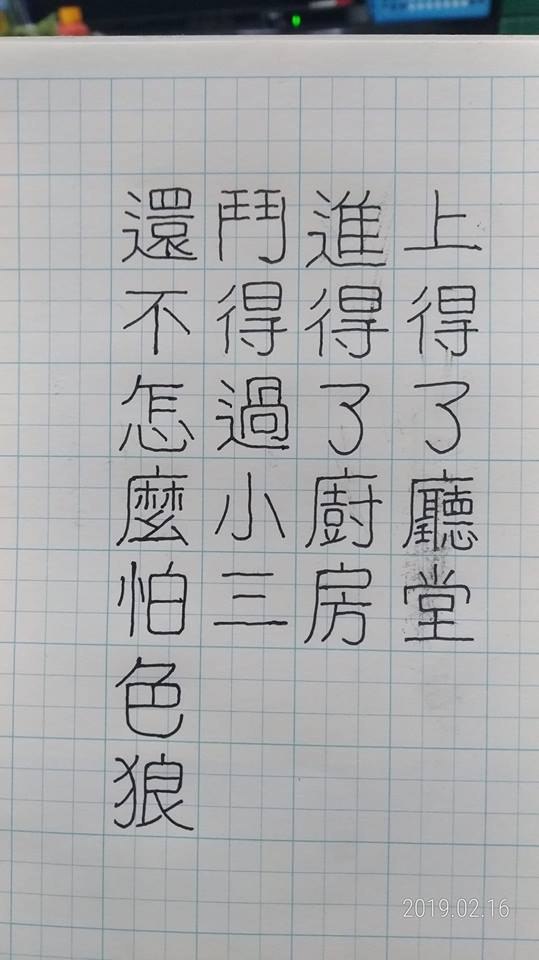 上得了廳堂
進得了廚房
鬥得過小三
還不怎麼怕色狼
2019.02.16